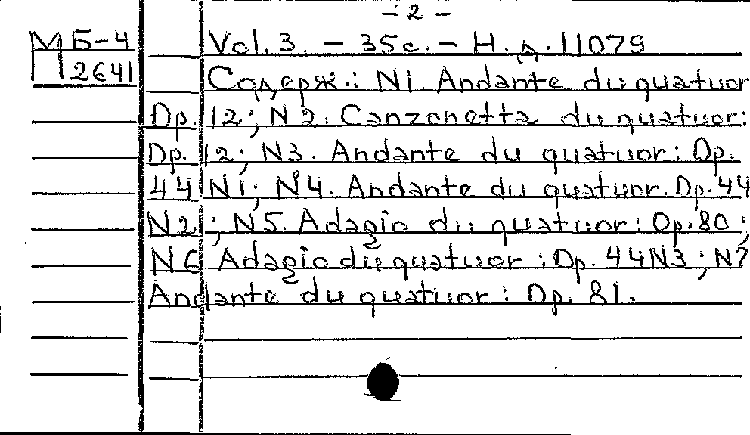 - 2 -
М Б-4 Vol. 3. - 35c. - Н. д. 11079
П 2641 Содерж.: N1. Andante du quatuor
Op. 12; N2. Canzonetta du quatuor:
Op. 12; N3. Andante du quatuor: Op.
44 N1; N4. Andante du quatuor. Op. 44
N2; N5. Adagio du quatuor: Op. 80;
N6 Adagio du quatuor: Op. 44 N3; N7
Andante du quatuor: Op. 81.